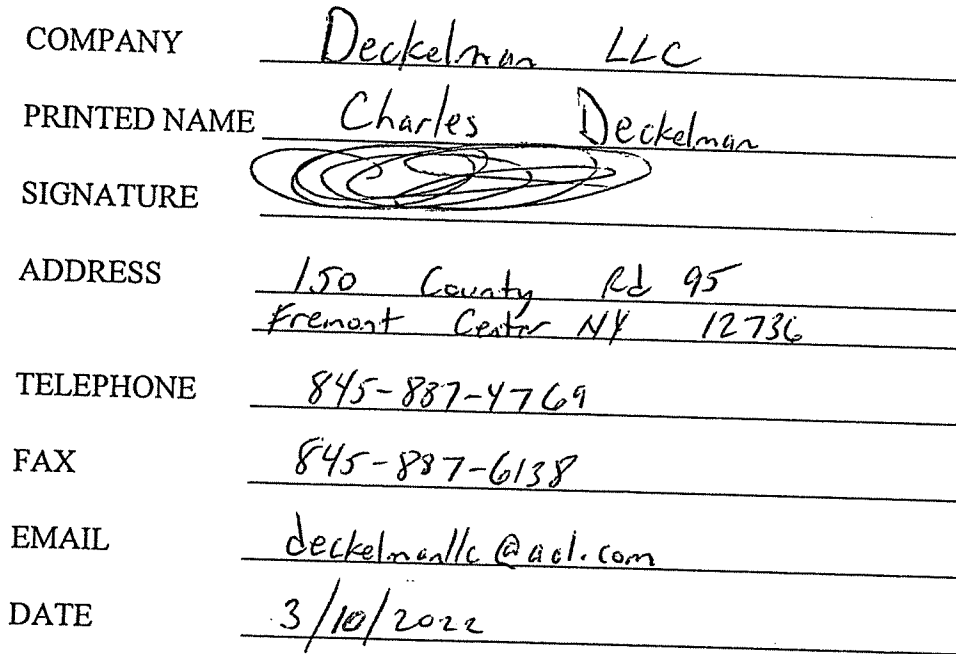 COMPANY Deckelman LLC
PRINTED NAME Charles Deckelman
SIGNATURE
ADDRESS 150 County Rd 95
Fremont Center NY 12736
TELEPHONE 845-887-4769
FAX 845-887-6138
EMAIL deckelmanllc@aol.com
DATE 3/10/2022